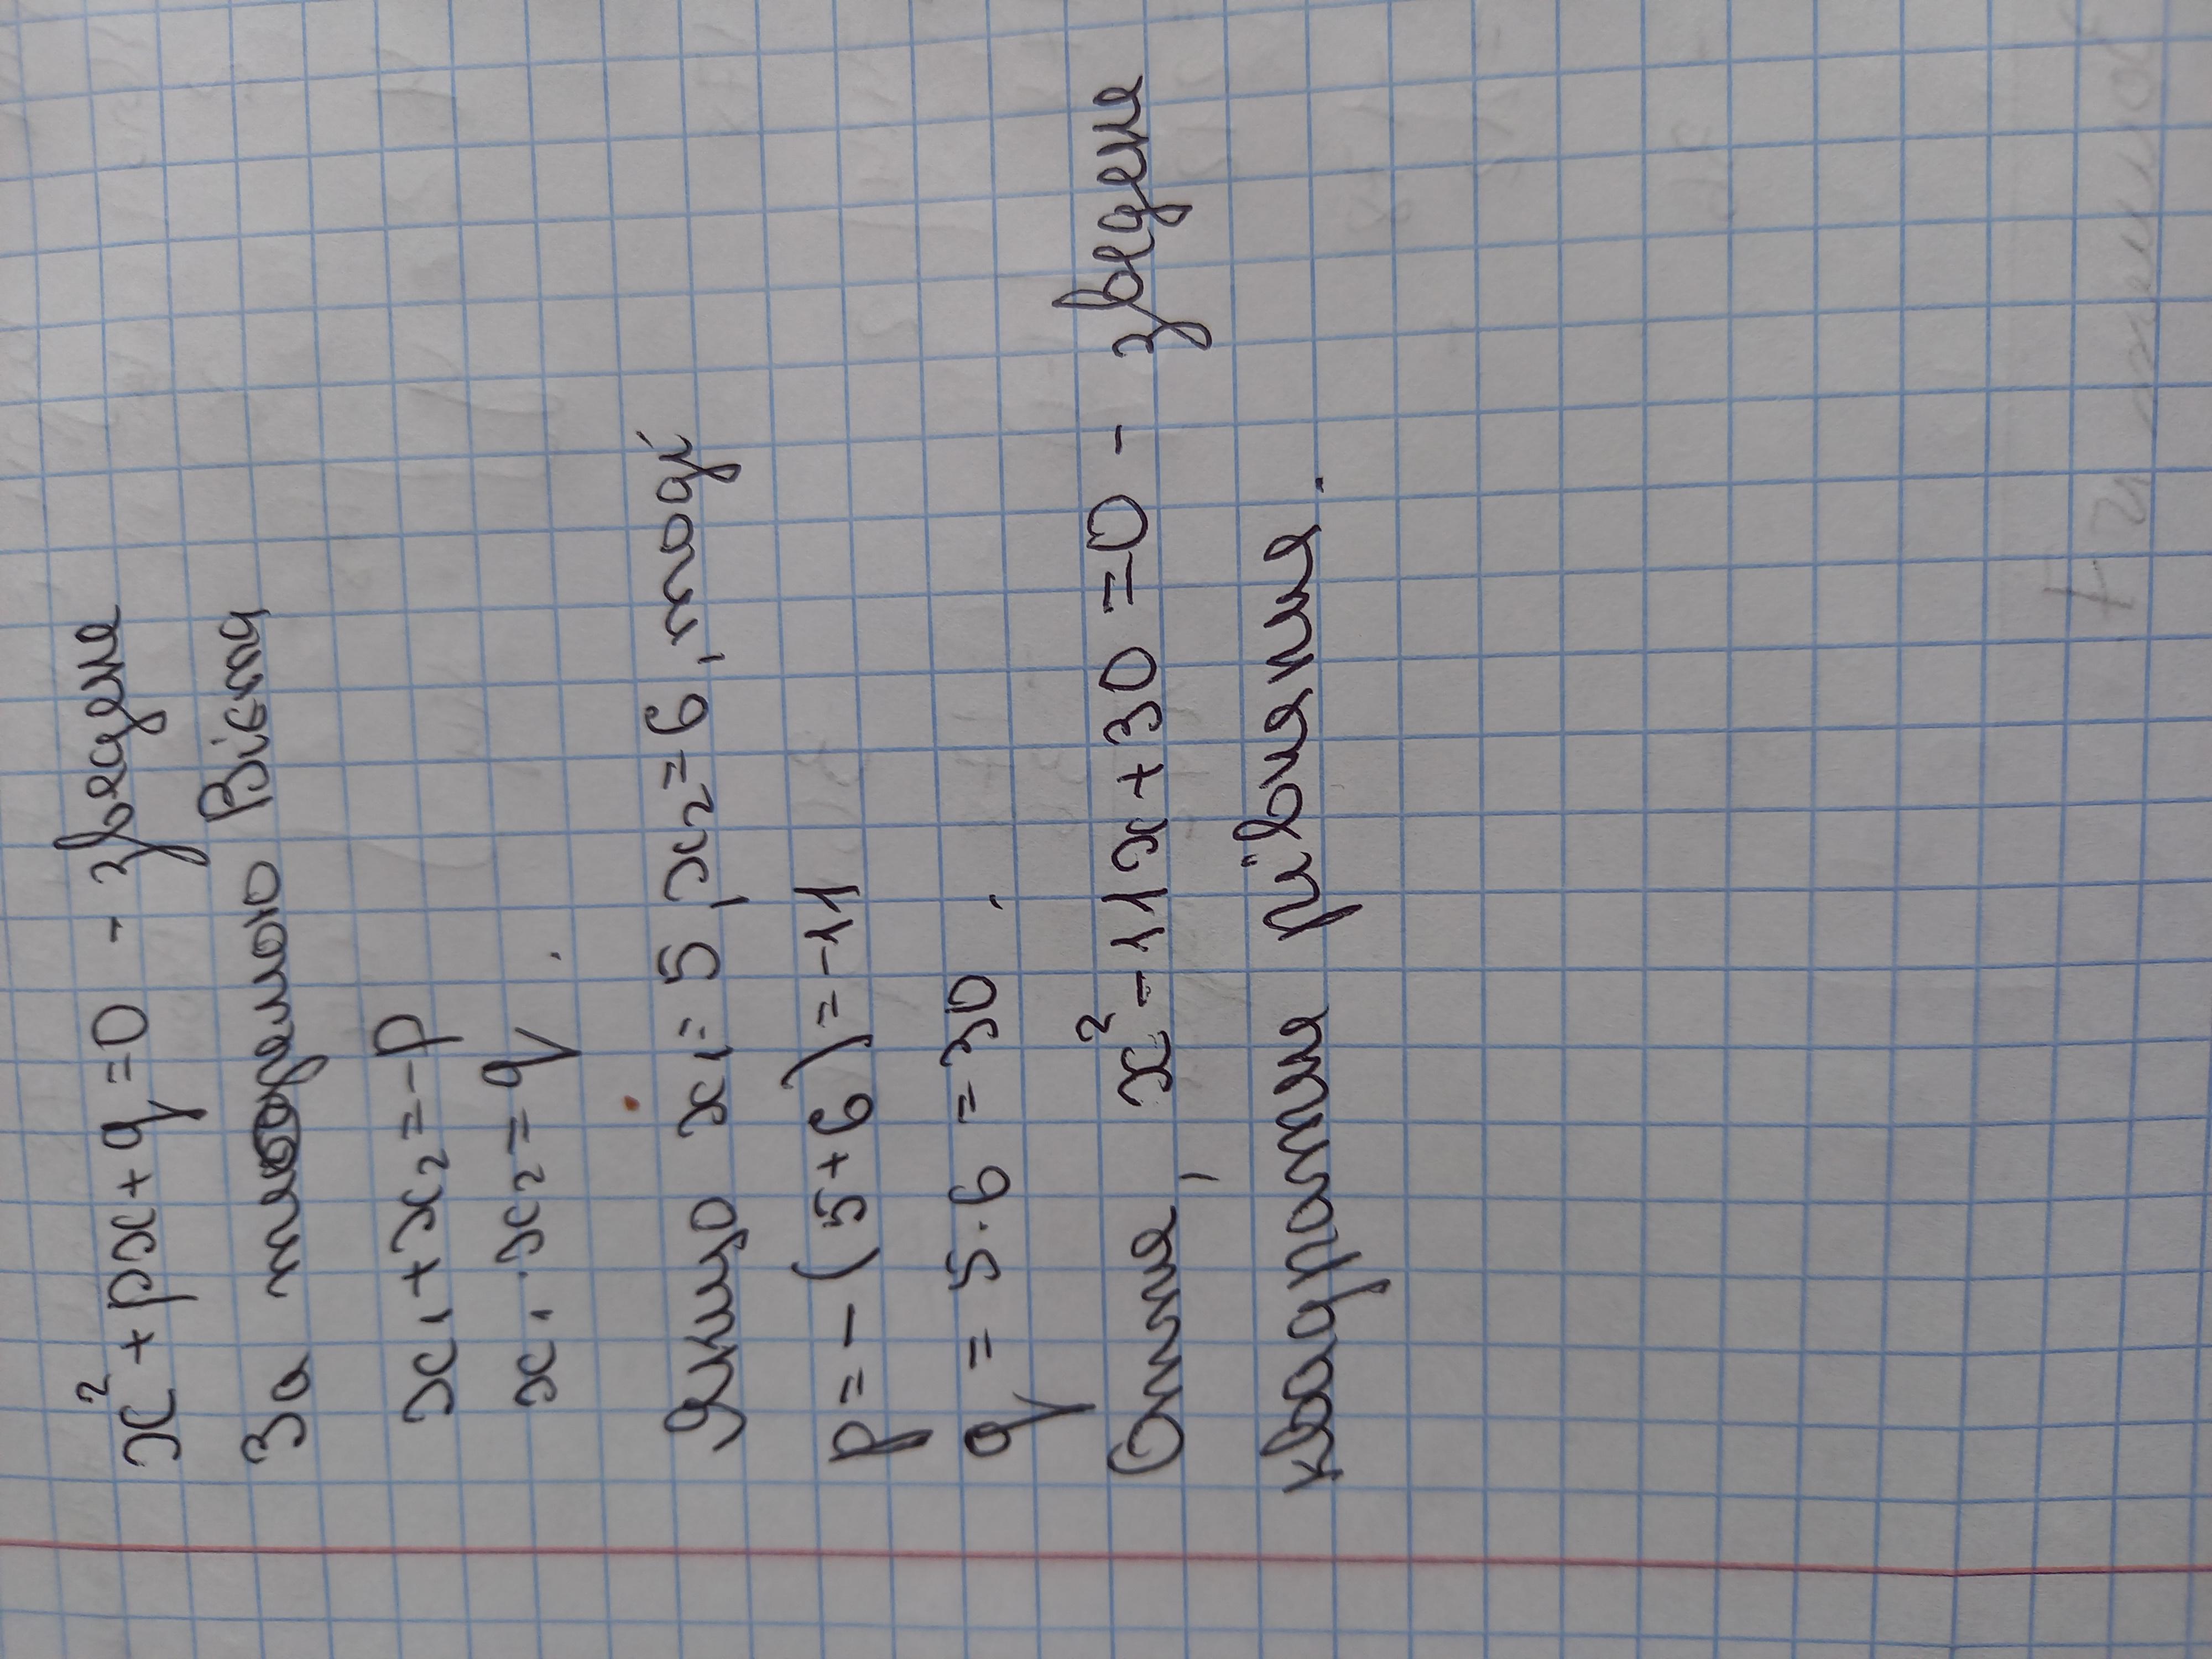 x² + px + q = 0 - зведене
За теоремою Вієта
x₁ + x₂ = -p
x₁ · x₂ = q .
Якщо x₁ = 5, x₂ = 6, тоді
p = - (5 + 6) = -11
q = 5 · 6 = 30 .
Отже, x² - 11x + 30 = 0 - зведене
квадратне рівняння .